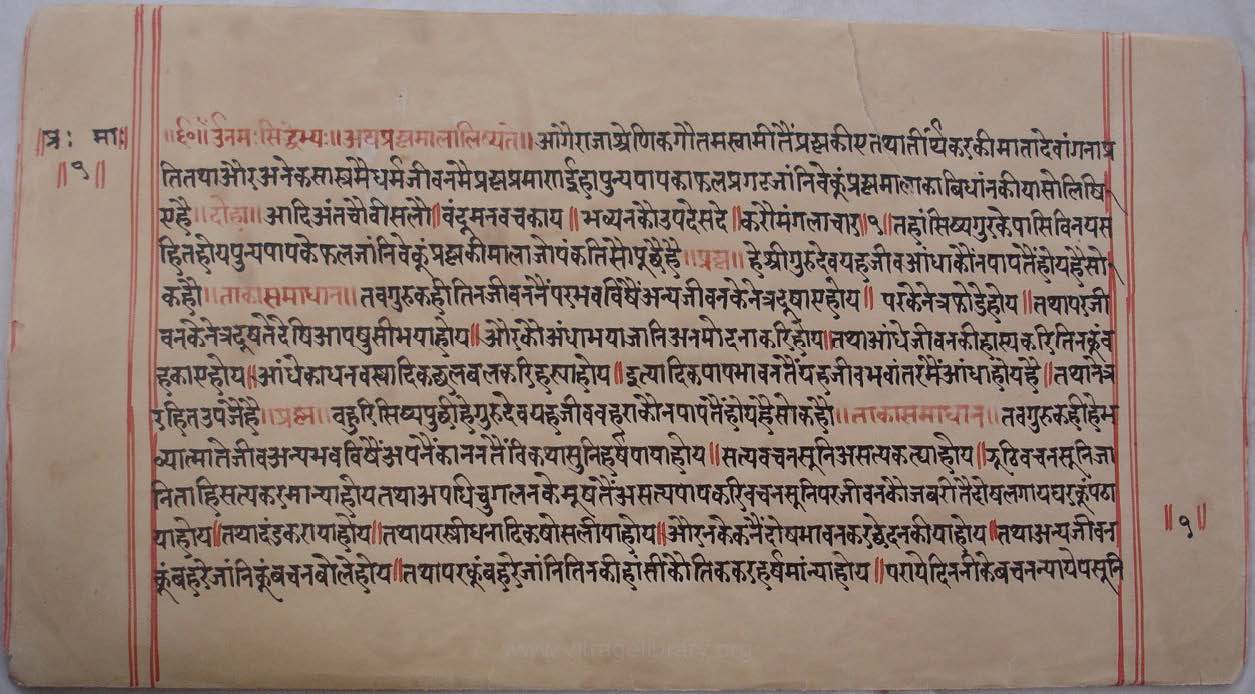 ॥प्र: मा॥
॥१॥
॥६०॥ ॐनमःसिद्धेभ्यः॥ अथप्रश्नमालालिष्यते॥ आगैराजाश्रेणिकगौतमस्वामीतैंप्रश्नकीएतथातीर्थंकरकीमातादेवांगनाप्र
तितथाऔरअनेकसास्त्रमैधर्मजीवनमैप्रश्नप्रमाणईहापुन्यपापकाफलप्रगटजांनिवेकूंप्रश्नमालाकाबिधांनकीयासोलिषि
एहै॥दोहा॥ आदिअंतचौवीसलौ॥वंदूमनवचकाय॥ भव्यनकौउपदेसदे॥करौमंगलाचार॥१॥तहांसिष्यगुरकेपासिविनयस
हितहोयपुन्यपापकेफलजांनिवेकूंप्रश्नकीमालाजोपंकतिसोपूछैहै॥प्रश्न॥ हेश्रीगुरुदेवयहजीवआंधाकौनपापतैंहोयहैसो
कहौ॥ताकासमाधान॥ तवगुरुकहीतिनजीवननैंपरभवविषैंअन्यजीवनकेनेत्रदूषाएहोय॥ परकेनेत्रफोडेहोय॥तथापरजी
वनकेनेत्रदूषतेदेषिआपषुसीभयाहोय॥ औरकोअंधाभयाजानिअनमोदनाकरिहोय॥तथाआंधेजीवनकीहास्यकरितिनकूंव
हकाएहोय॥आंधेकाधनवस्त्रादिकछलबलकरिहरयाहोय॥इत्यादिकपापभावनतैंयहजीवभवांतरमैंआंधाहोयहै॥तथानेत्र
रहितउपजैंहै॥प्रश्न॥ वहुरिसिष्यपुछीहेगुरुदेवयहजीववहराकौनपापतैंहोयहैसोकहौ॥ताकासमाधान॥ तवगुरुकहीहेभ
व्यात्मातेजीवअन्यभवविषैंअपनैकाननतैंविकथासुनिहर्षपायाहोय॥सत्यवचनसूनिअसत्यकत्याहोय॥झूठिवचनसूनिजा
निताहिसत्यकरमान्याहोयतथाअपधिचुगलनकेमूषतैंअसत्यपापकरिवचनसूनिपरजीवनकौजबरीतैदोषलगायघरकूंपठा
याहोय॥तथादंडकरायाहोय॥तथापरस्त्रीधनादिकषोसलीयाहोय॥औरनकेकनैंदोषभावनकरछेदनकीयाहोय॥तथाअन्यजीवन
कूंबहरेजांनिकूंबचनबोलेहोय॥तथापरकूंबहरेजांनितिनकीहांसीकौतिककरहर्षमांन्याहोय॥परायेदिननीकेबचनन्यायेपसूनि
॥१॥